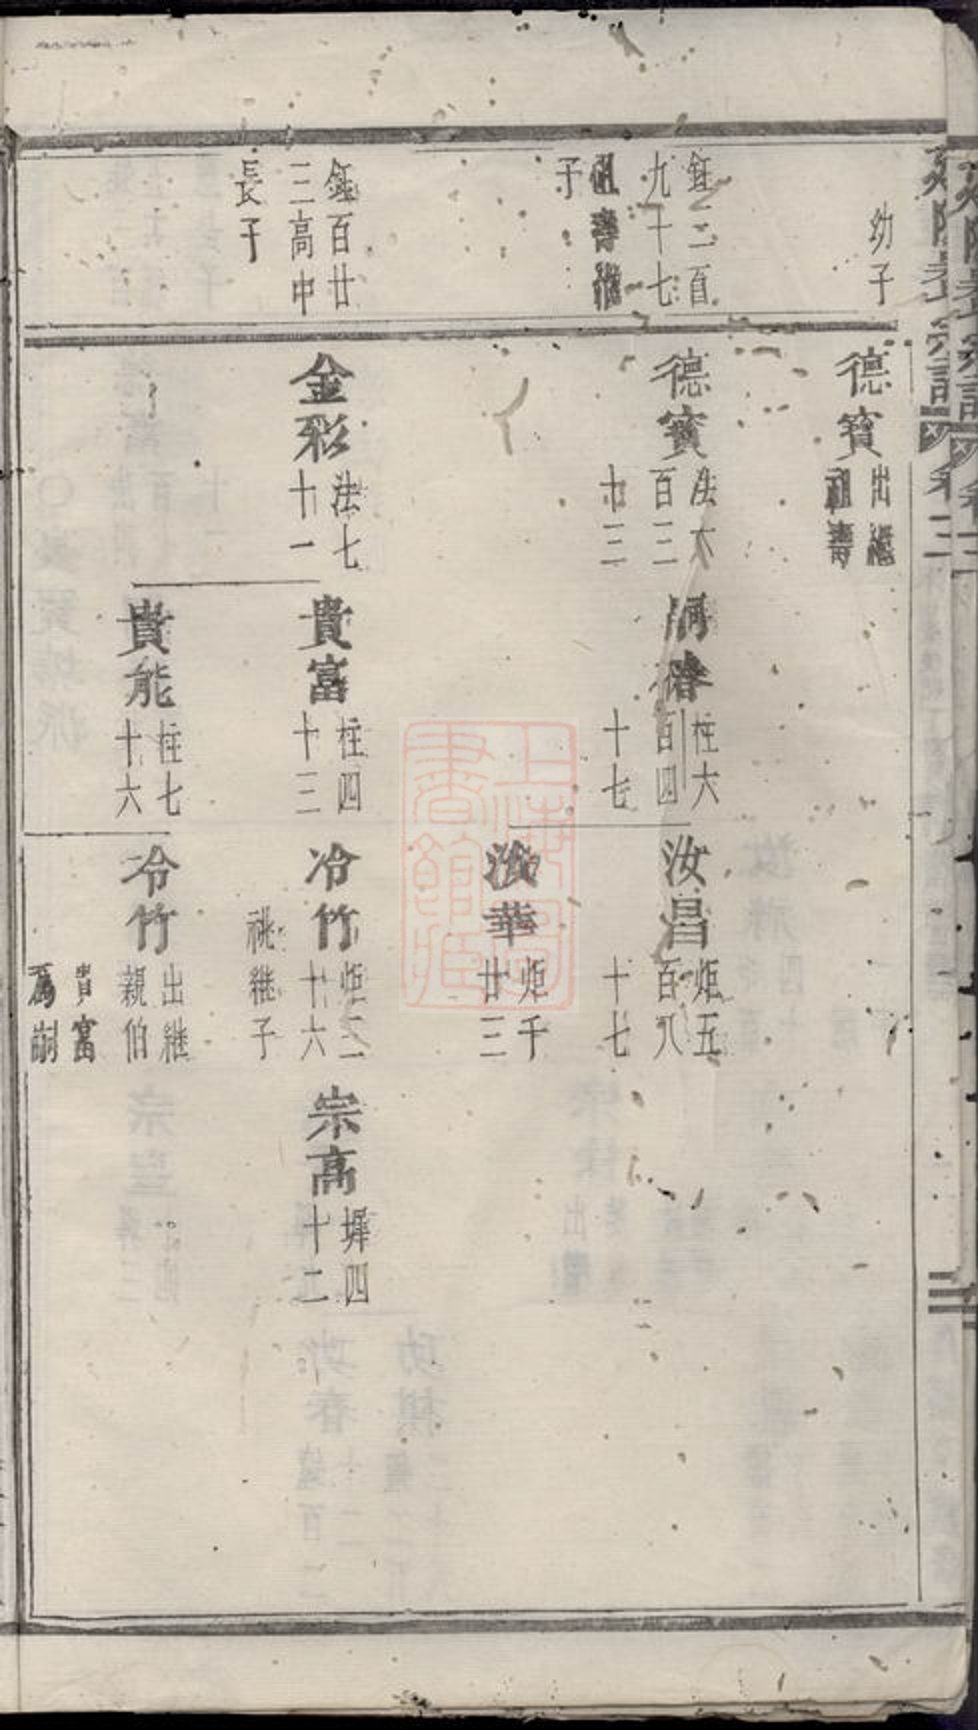 幼子
鉦二百
九十七
祖壽繼
子
鉦百廿
三高中
長子
德寶
出繼
祖壽
德寶
法六
百三
十三
金彩
法七
十一
嗣
柱六
百四
十七
貴富
柱四
十三
貴能
柱七
十六
汝昌
炬五
百八
十七
汝華
炬千
廿三
冷竹
炬二
十六
祧继子
冷竹
出继
親伯
貴富
為嗣
宗高
墀四
十二
上海圖書館藏